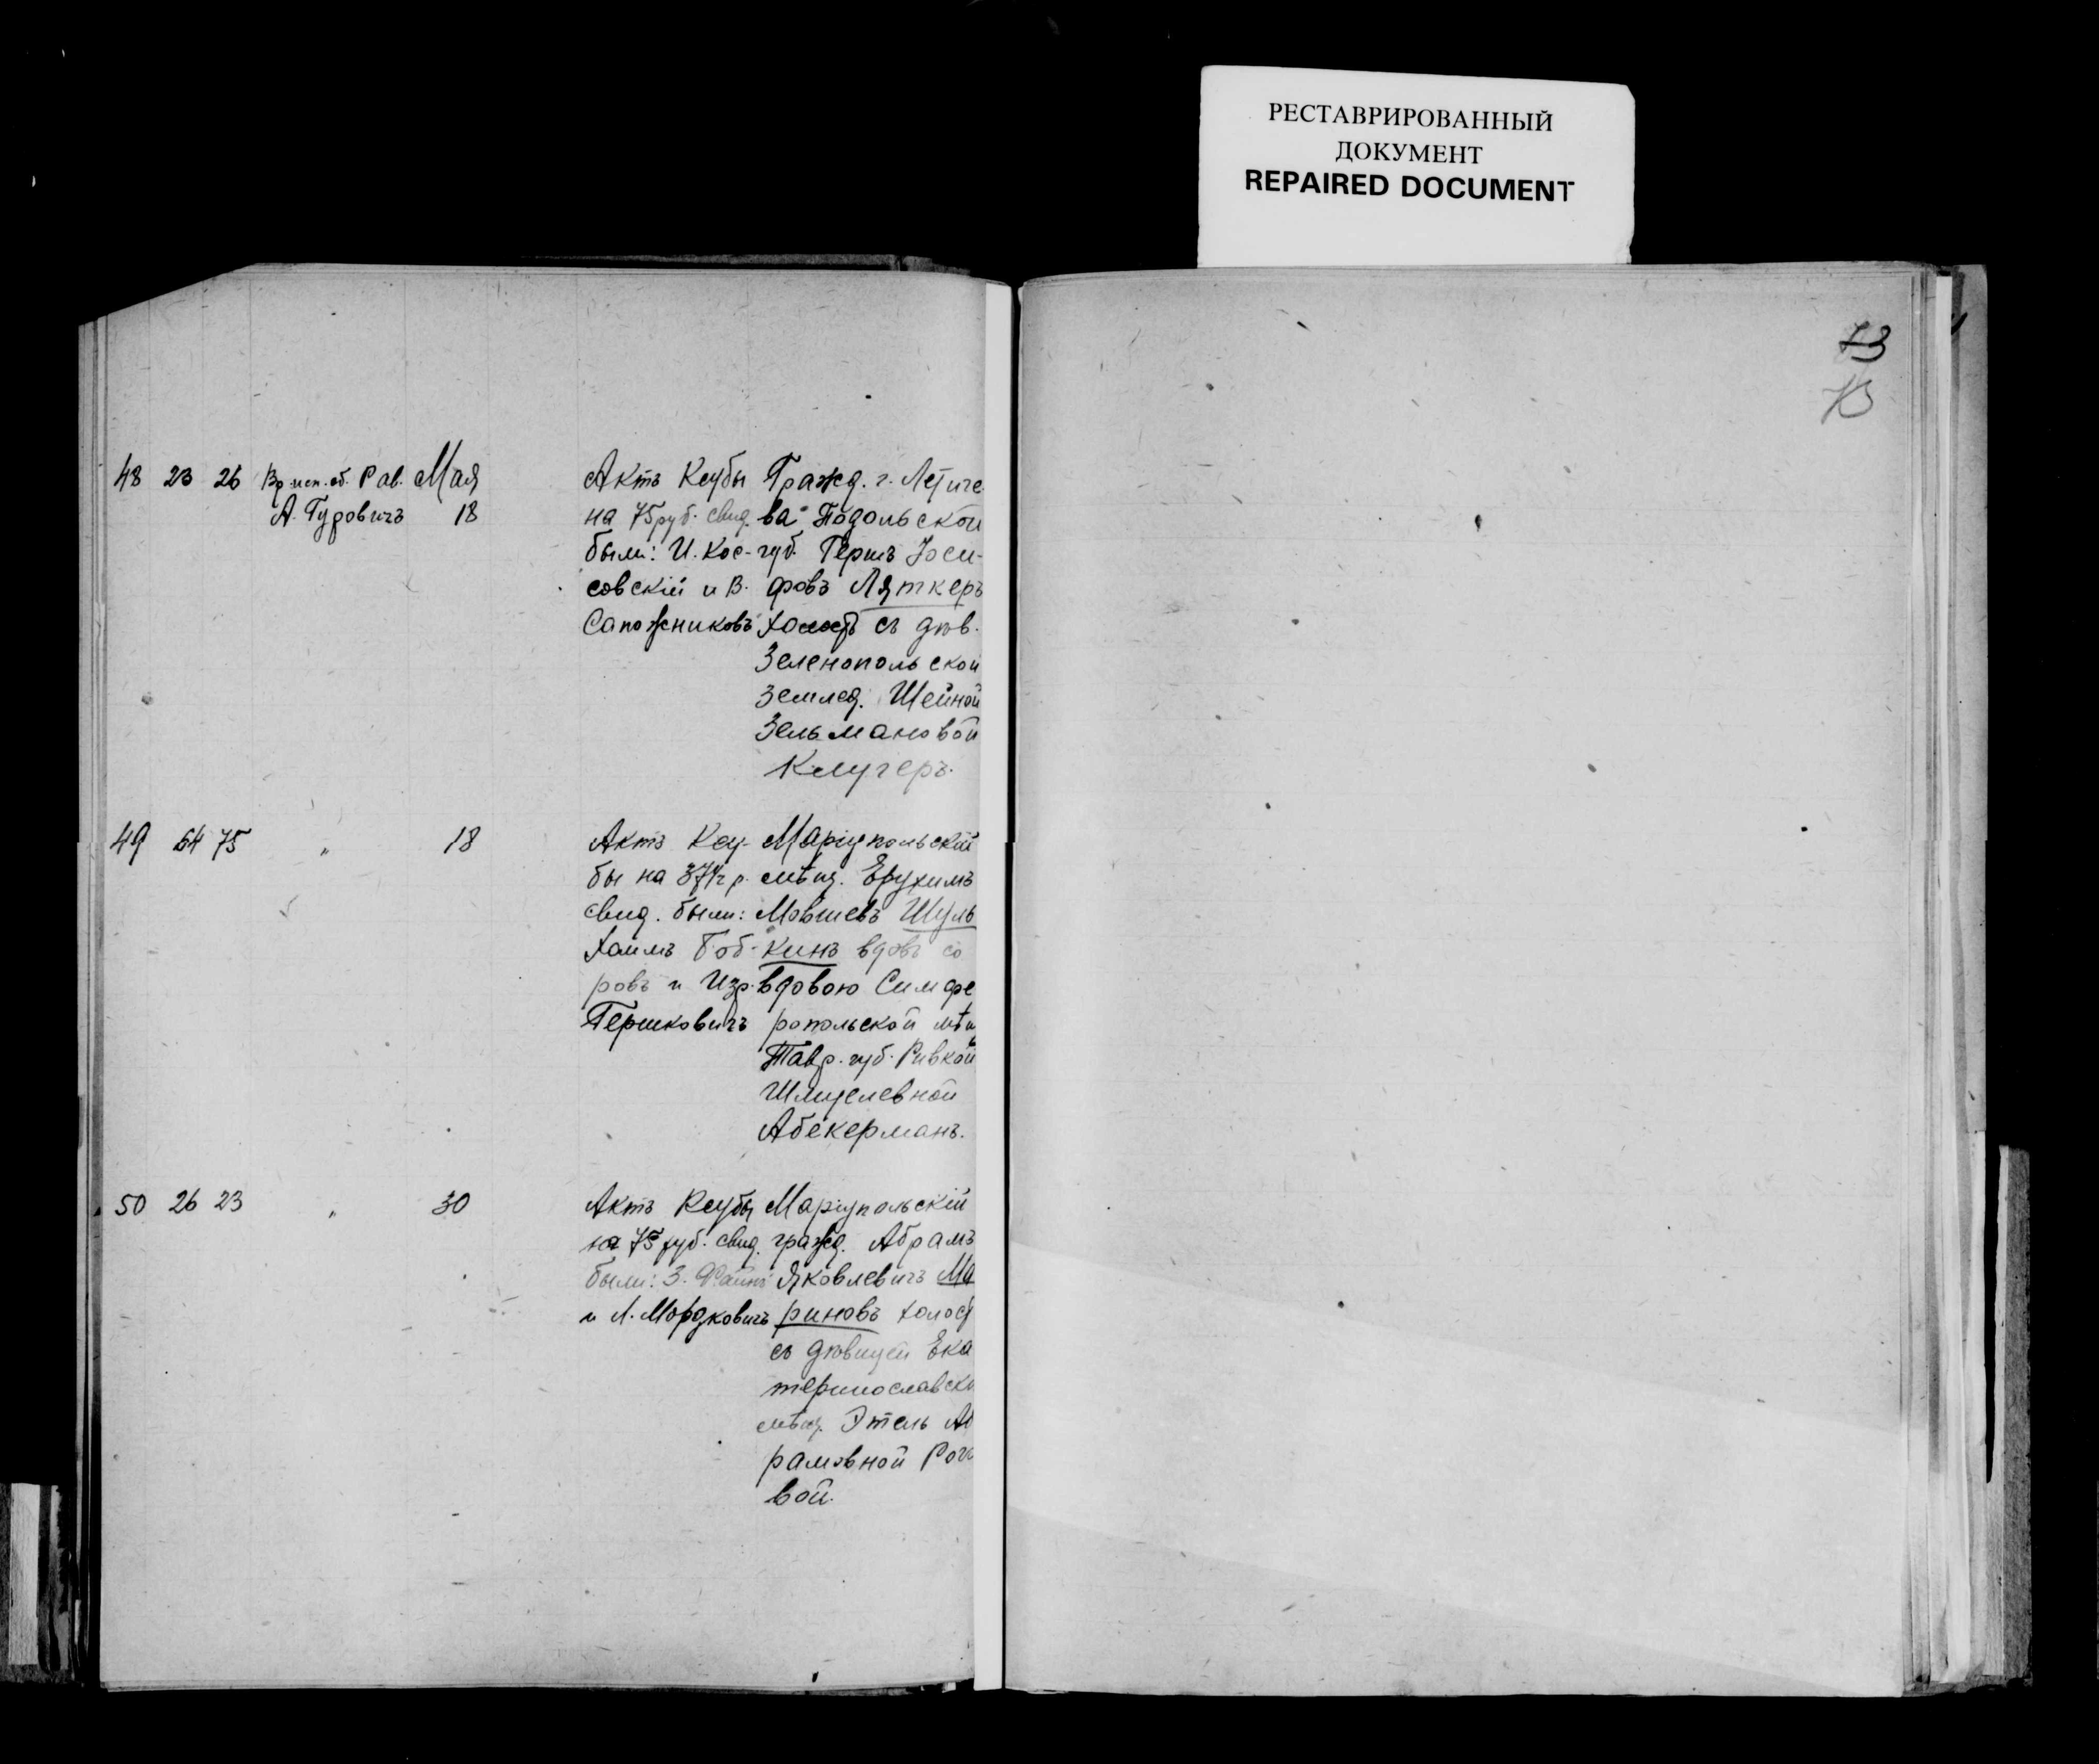 РЕСТАВРИРОВАННЫЙ
ДОКУМЕНТ
REPAIRED DOCUMENT
73
73
48 23 26 Вр. исп. об. Рав. Мая
А. Гуровичъ 18
Актъ Ксубы
на 75 руб. свид.
были: И. Кос-
совскій и В.
Сапожниковъ
Гражд. г. Летиче-
ва Подольской
губ. Гершъ Іоси-
фовъ Ляткеръ
холостъ съ дѣв.
Зеленопольской
землед. Шейной
Зельмановой
Клугеръ.
49 64 75 " 18
Актъ Ксу-
бы на 37½ р.
свид. были:
Хаимъ Боб-
ровъ и Изр.
Гершковичъ
Маріупольскій
мѣщ. Ерухимъ
Мовшевъ Шуль
кинъ вдовъ со
вдовою Симфе
ропольской мѣщ
Тавр. губ. Ривкой
Шмуелевной
Абекерманъ.
50 26 23 " 30
Актъ Ксубы
на 75 руб. свид.
были: З. Файнъ
и Л. Мордковичъ
Маріупольскій
гражд. Абрамъ
Яковлевичъ Ма
риновъ холост
съ дѣвицей Ека
теринославско
мѣщ. Этель Аб
рамовной Рога
вой.